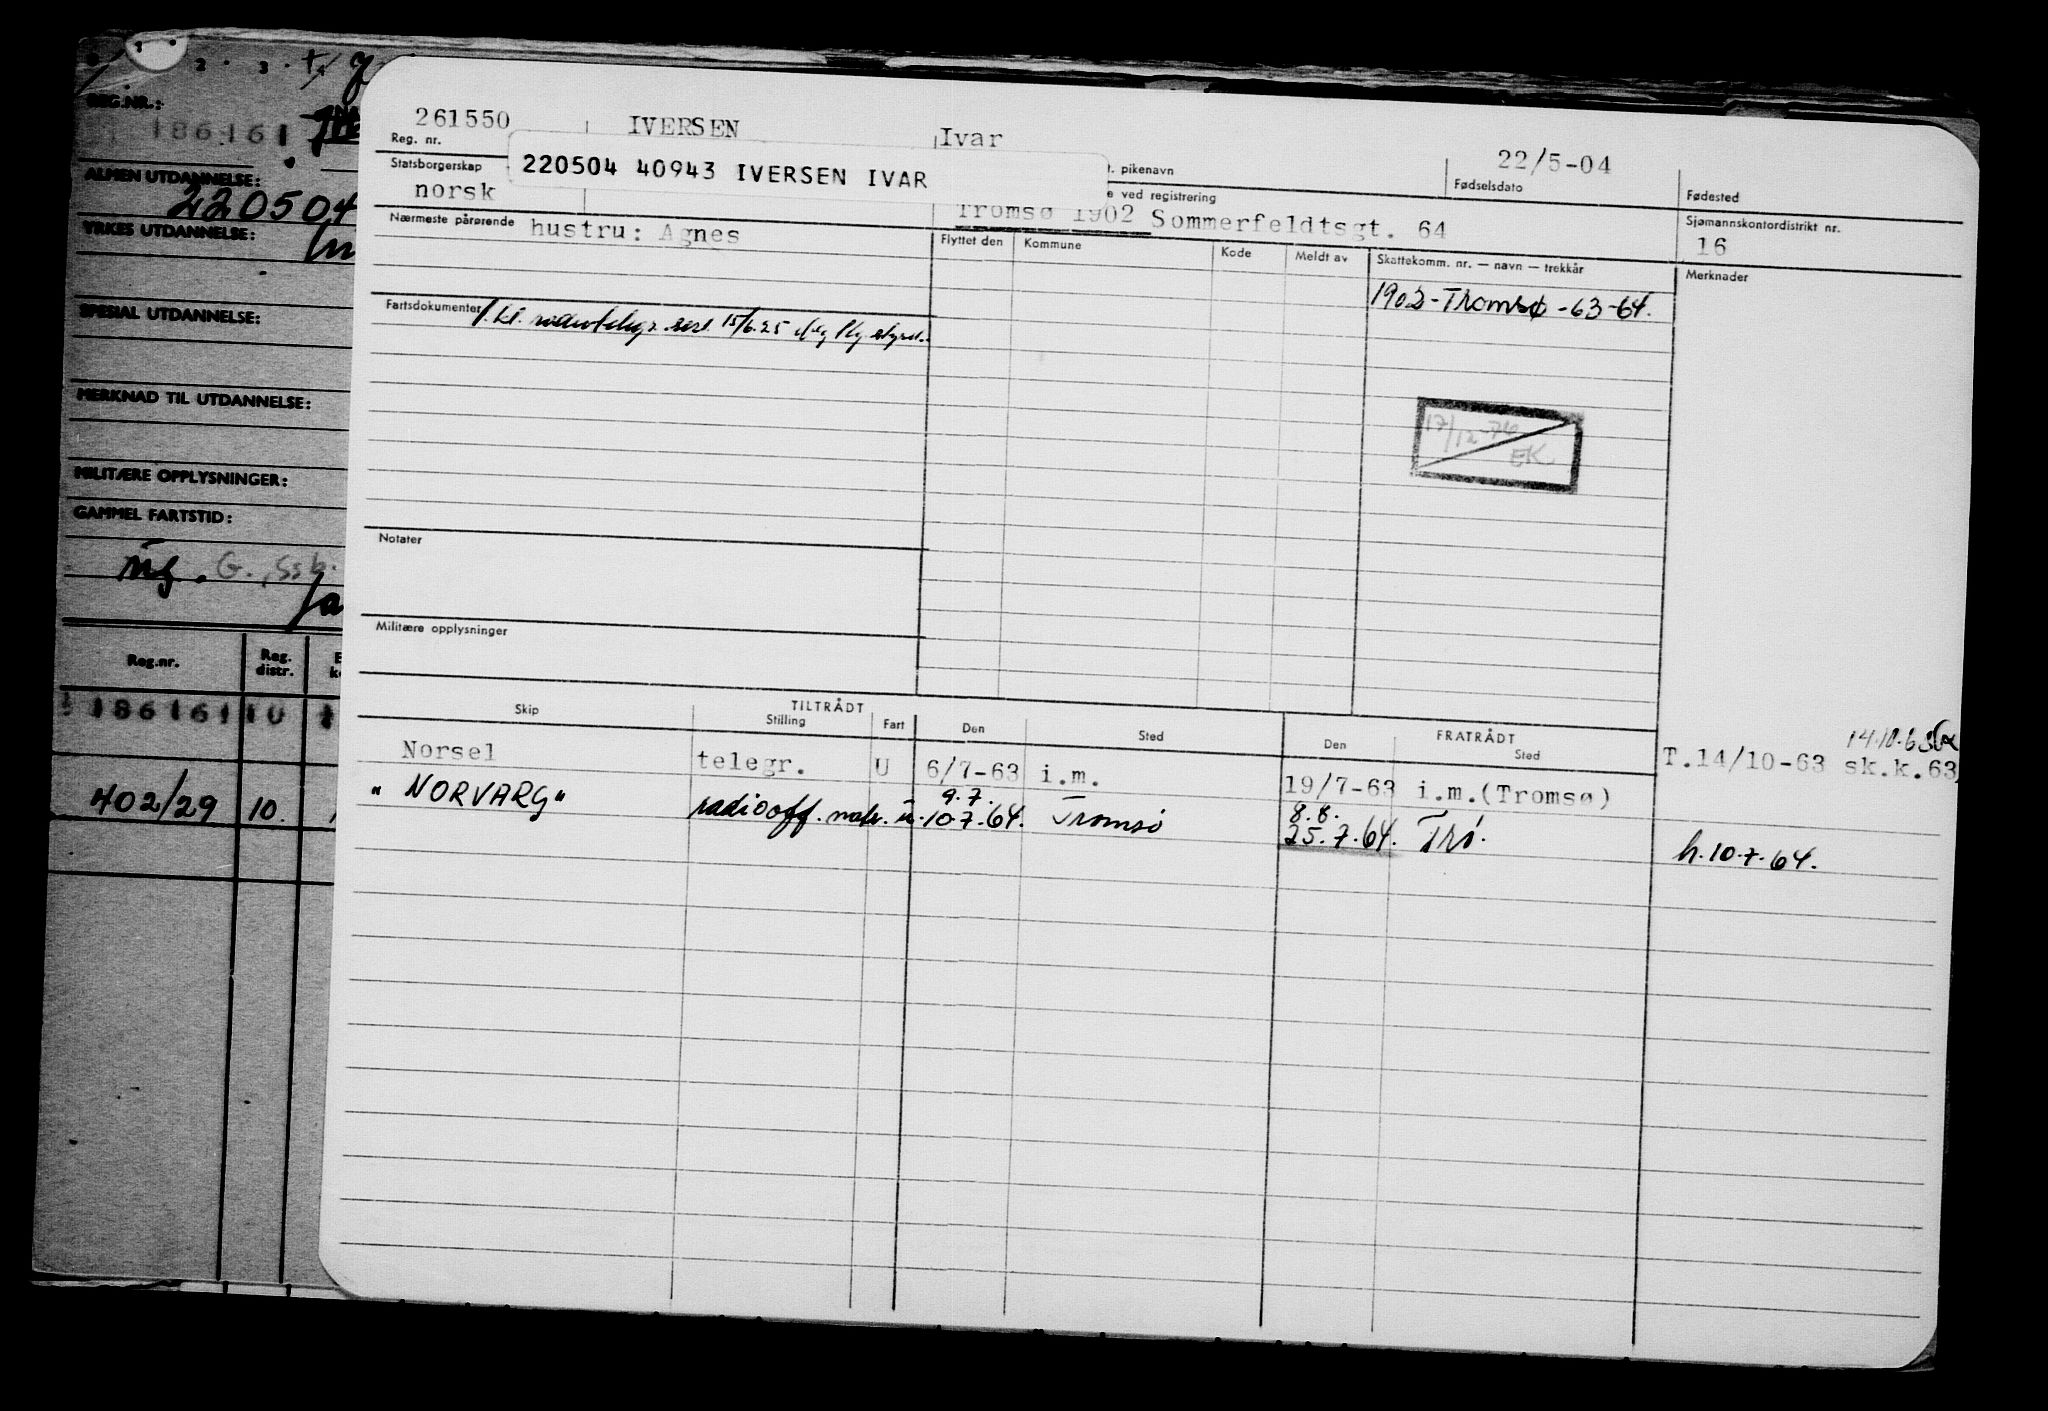 2 . 3 .
REG.NR.:
186161
ALMEN UTDANNELSE:
220504
YRKES UTDANNELSE:
SPESIAL UTDANNELSE:
MERKNAD TIL UTDANNELSE:
MILITÆRE OPPLYSNINGER:
GAMMEL FARTSTID:
G., Ssb.
Reg.nr. Reg. distr.
186161 10
402/29 10.
261550 IVERSEN Ivar 22/5-04
Reg. nr. pikenavn Fødselsdato Fødested
220504 40943 IVERSEN IVAR
Statsborgerskap ved registrering
norsk Tromsø 1902 Sommerfeldtsgt. 64
Sjømannskontordistrikt nr.
16
Nærmeste pårørende hustru: Agnes
Flyttet den Kommune Kode Meldt av Skattekomm. nr. — navn — trekkår Merknader
1902-Tromsø-63-64.
Fartsdokumenter 1. kl. 15/6.25
17/12-74
EK.
Notater
Militære opplysninger
TILTRÅDT FRATRÅDT
Skip Stilling Fart Den Sted Den Sted
14.10.63
Norsel telegr. U 6/7-63 i.m. 19/7-63 i.m.(Tromsø) T.14/10-63 sk.k.63
9.7. 8.8.
"NORVARG" radiooff. u. 10.7.64. Tromsø 25.7.64. Trø. h.10.7.64.